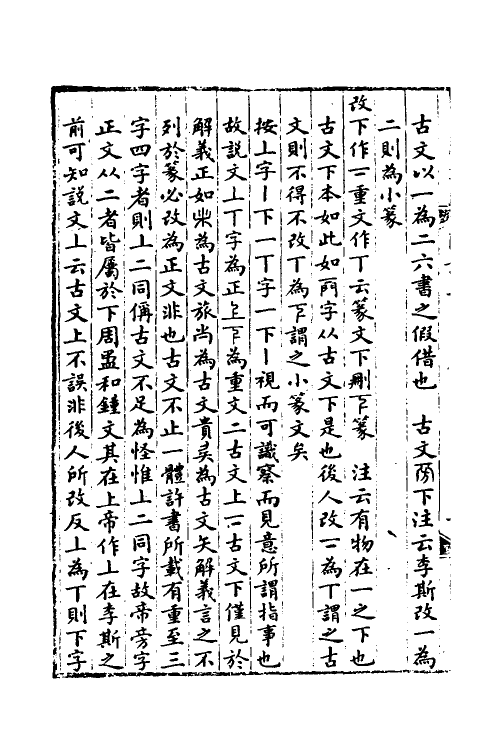 古文以一為二六書之假借也　古文㫄下注云李斯改一為
二則為小篆
改下作𠄟重文作丅云篆文下刪𠄟篆　注云有物在一之下也
古文下本如此如㒸字从古文下是也後人改二為丅謂之古
文則不得不改丅為𠄟謂之小篆文矣
按上字丨下一丅字一下丨視而可識察而見意所謂指事也
故說文上丅字為正𠄞𠄟為重文二古文上二古文下僅見於
解義正如𣥐為古文旅尚為古文貴㚖為古文矢解義言之不
列於篆必改為正文非也古文不止一體許書所載有重至三
字四字者則上二同偁古文不足為怪惟上二同字故帝㫄字
正文从二者皆屬於下周盄和鐘文其在上帝作上在李斯之
前可知說文上云古文上不誤非後人所改反上為丅則下字